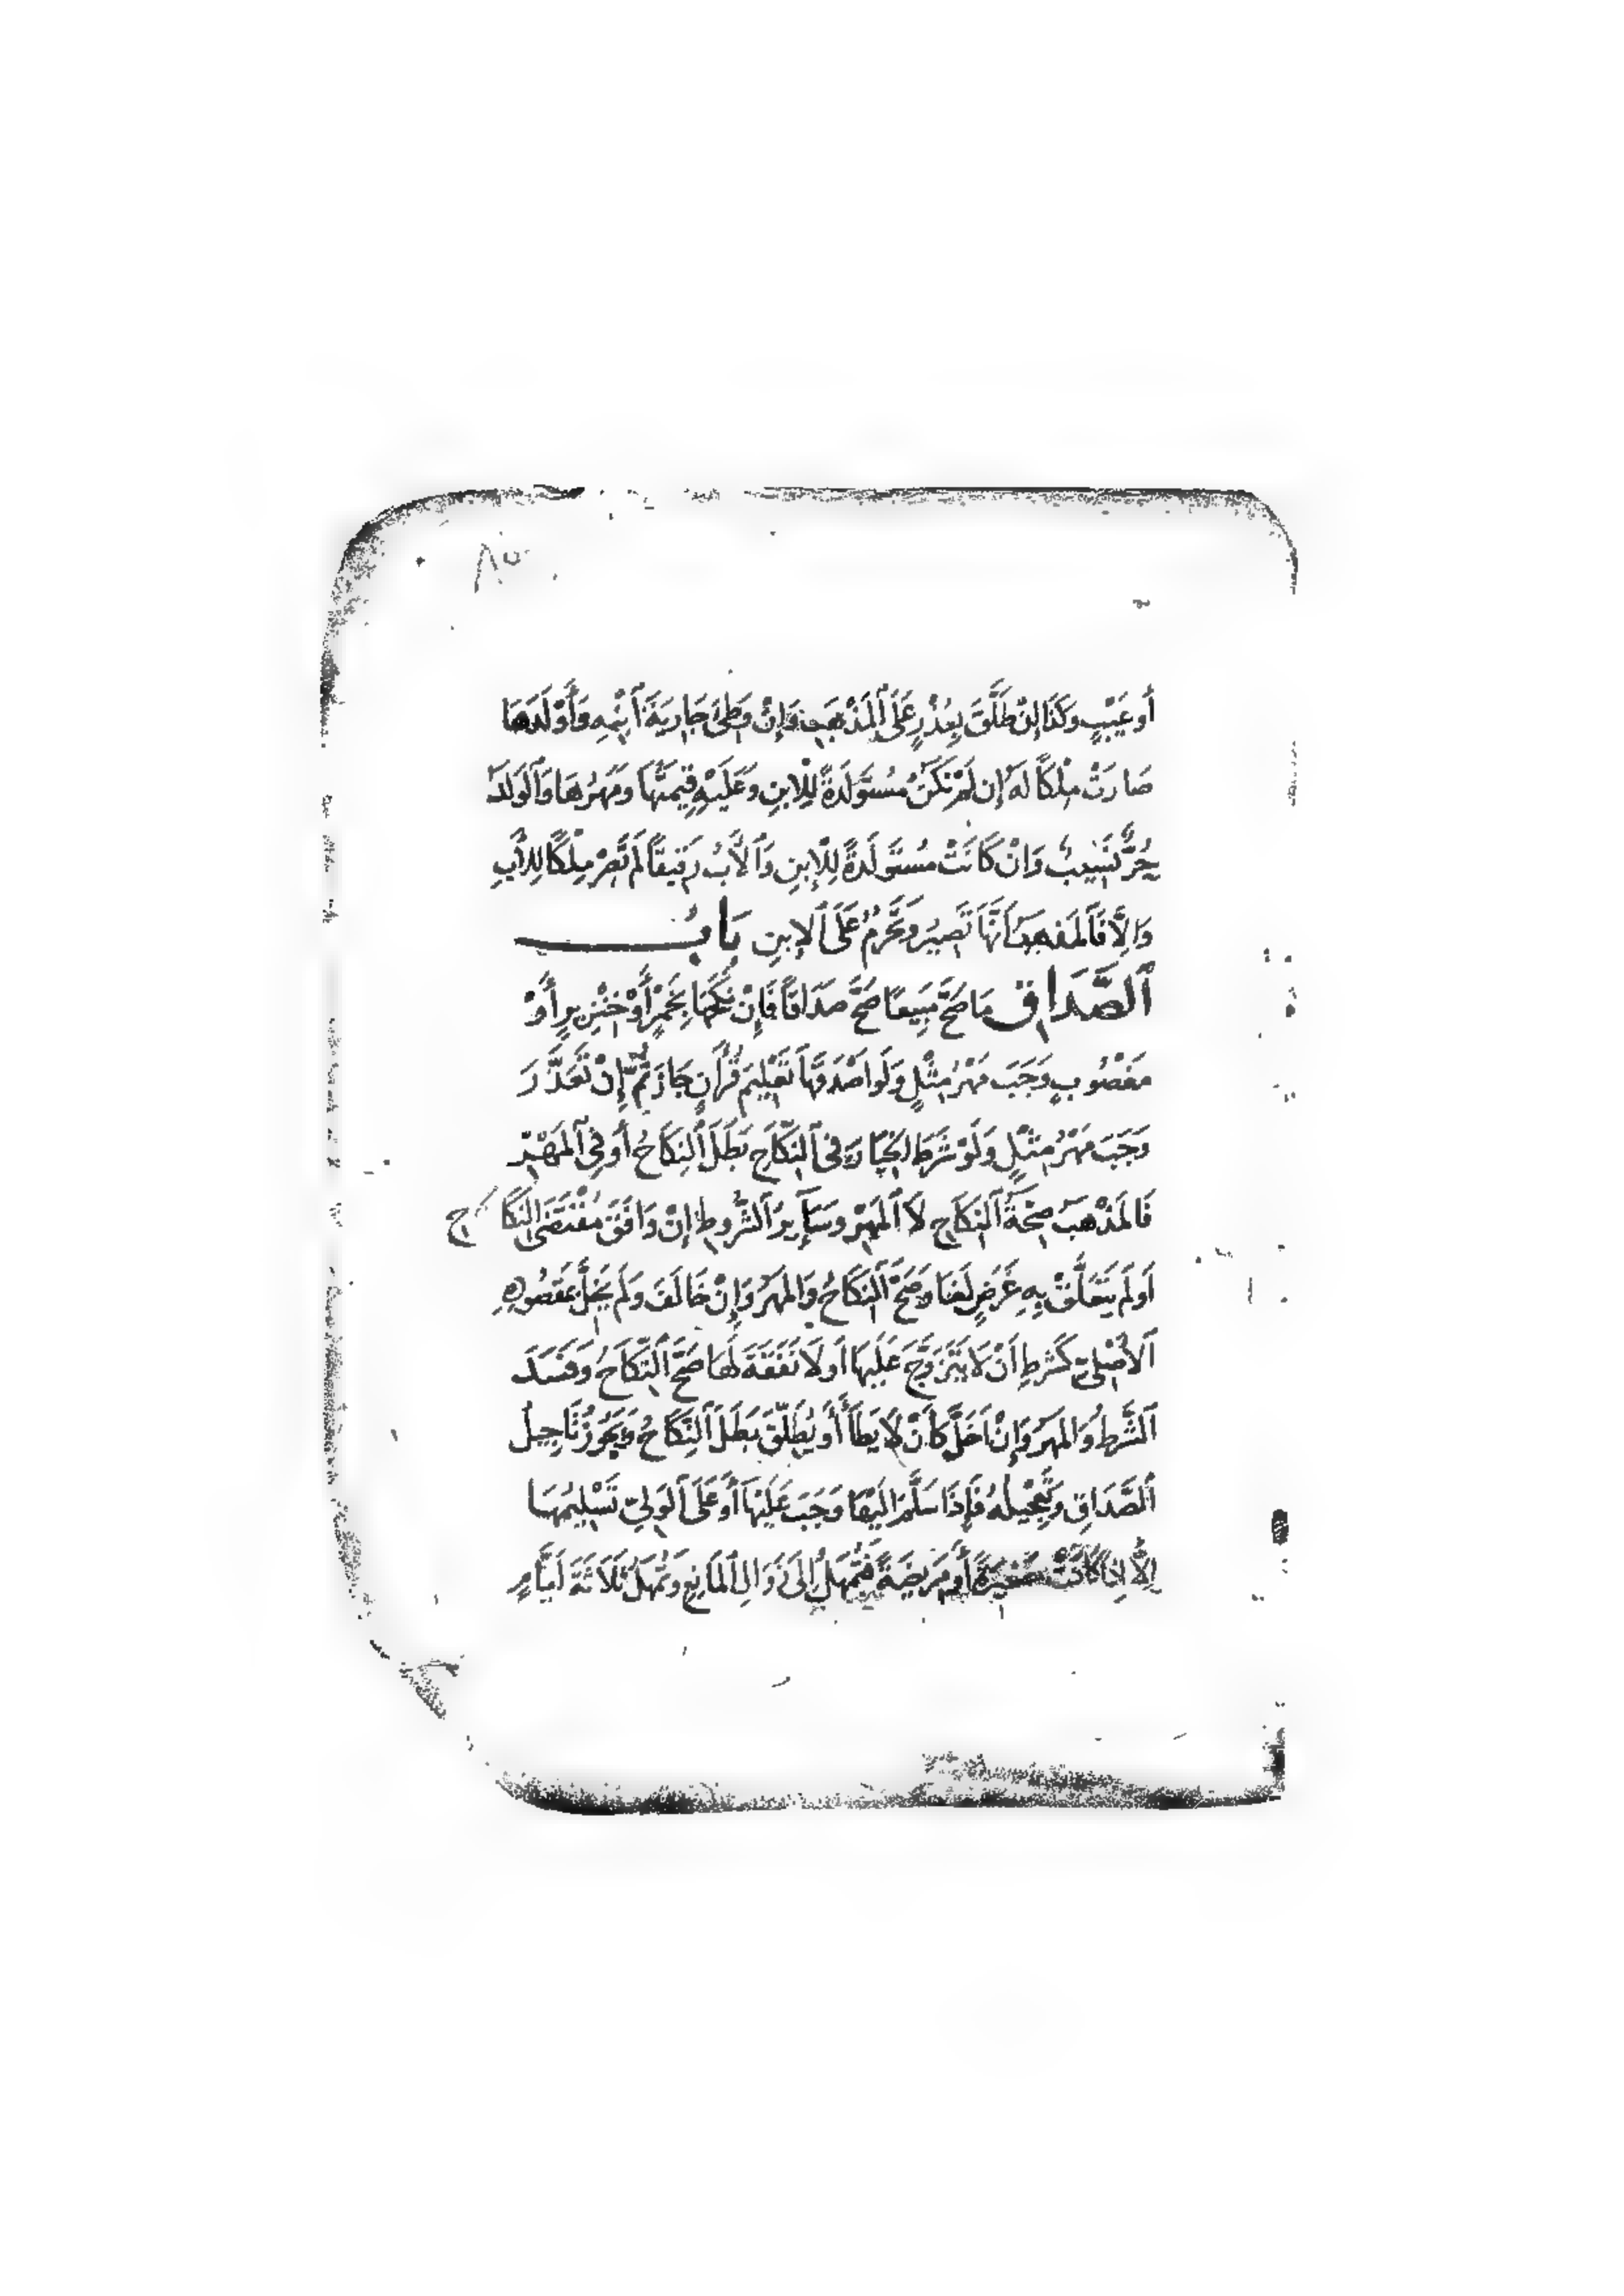 ٨٥
أَو عَيْبٍ وَكَذَا إِنْ طَلَّقَ بِعُذْرٍ عَلَى ٱلْمَذْهَبِ وَإِنْ وَطِئَ جَارِيَةَ ٱبْنِهِ وَأَوْلَدَهَا
صَارَتْ مِلْكًا لَهُ إِن لَمْ تَكُنْ مُسْتَوْلَدَةً لِلْاِبنِ وَعَلَيْهِ قِيمَتُهَا وَمَهْرُهَا وَٱلْوَلَدُ
حُرٌّ نَسِيبٌ وَإِنْ كَانَتْ مُسْتَوْلَدَةً لِلْاِبنِ وَٱلْأَبُ رَقِيقًا لَمْ تَصِرْ مِلْكًا لِلْأَبِ
وَإِلَّا فَٱلْمَذْهَبُ أَنَّهَا تَصِيرُ وَتَحْرُمُ عَلَى ٱلْاِبنِ بَابُ
ٱلصَّدَاقِ مَا صَحَّ مَبِيعًا صَحَّ صَدَاقًا فَإِنْ نَكَحَهَا بِخَمْرٍ أَوْ خِنْزِيرٍ أَوْ
مَغْصُوبٍ وَجَبَ مَهْرُ مِثْلٍ وَلَو أَصْدَقَهَا تَعْلِيمَ قُرْآنٍ جَازَ ثُمَّ إِنْ تَعَذَّرَ
وَجَبَ مَهْرُ مِثْلٍ وَلَوْ شَرَطَ الخِيَارَ فِي ٱلنِّكَاحِ بَطَلَ ٱلنِّكَاحُ أَو فِي ٱلْمَهْرِ
فَالْمَذْهَبُ صِحَّةُ ٱلنِّكَاحِ لَا ٱلْمَهْرِ وَسَآئِرُ ٱلشُّرُوطِ إِنْ وَافَقَ مُقْتَضَى النِّكَاحِ
أَو لَمْ يَتَعَلَّقْ بِهِ غَرَضٌ لَغَا وَصَحَّ ٱلنِّكَاحُ وَالْمَهْرُ وَإِنْ خَالَفَ وَلَمْ يُخِلَّ بِمَقْصُودِهِ
ٱلْأَصْلِيِّ كَشَرْطِ أَنْ لَا يَتَزَوَّجَ عَلَيْهَا أَو لَا نَفَقَةَ لَهَا صَحَّ ٱلنِّكَاحُ وَفَسَدَ
ٱلشَّرْطُ وَالْمَهْرُ وَإِنْ أَخَلَّ كَأَنْ لَا يَطَأَ أَوْ يُطَلِّقَ بَطَلَ ٱلنِّكَاحُ وَيَجُوزُ تَأْجِيلُ
ٱلصَّدَاقِ وَتَعْجِيلُهُ فَإِذَا سَلَّمَ إِلَيْهَا وَجَبَ عَلَيْهَا أَوْ عَلَى ٱلْوَلِيِّ تَسْلِيمُهَا
إِلَّا إِذَا كَانَتْ صَغِيرَةً أَوْ مَرِيضَةً فَتُمْهَلُ إِلَى زَوَالِ ٱلْمَانِعِ وَتُمْهَلُ ثَلَاثَةَ أَيَّامٍ